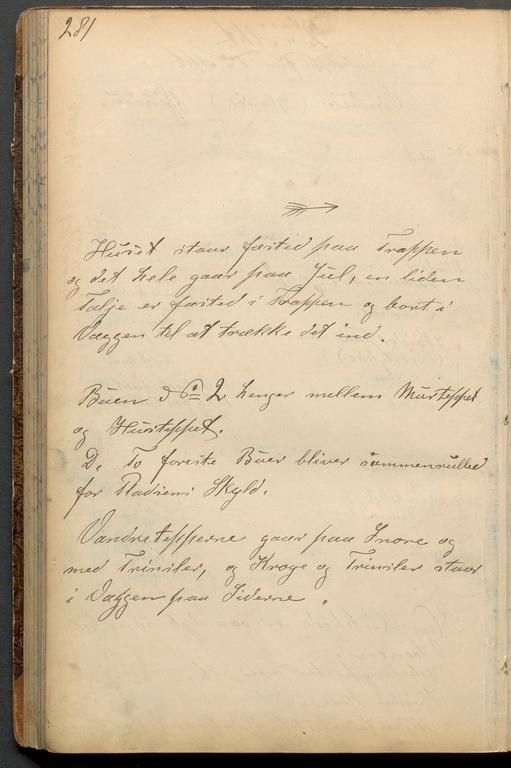 281
Huset staar fæsted paa Trappen
og det hele gaar paa Jul, en liden
Talje er fæsted i Trappen og bort i
Væggen til at trække det ind.
Buen No 2 henger mellem Murteppet
og Husteppet.
De To forreste Buer bliver sammenrulled
for Pladsens Skyld.
Vandretepperne gaar paa Snore og
med Trinsler, og Kroge og Trinsler staar
i Væggen paa Siderne.